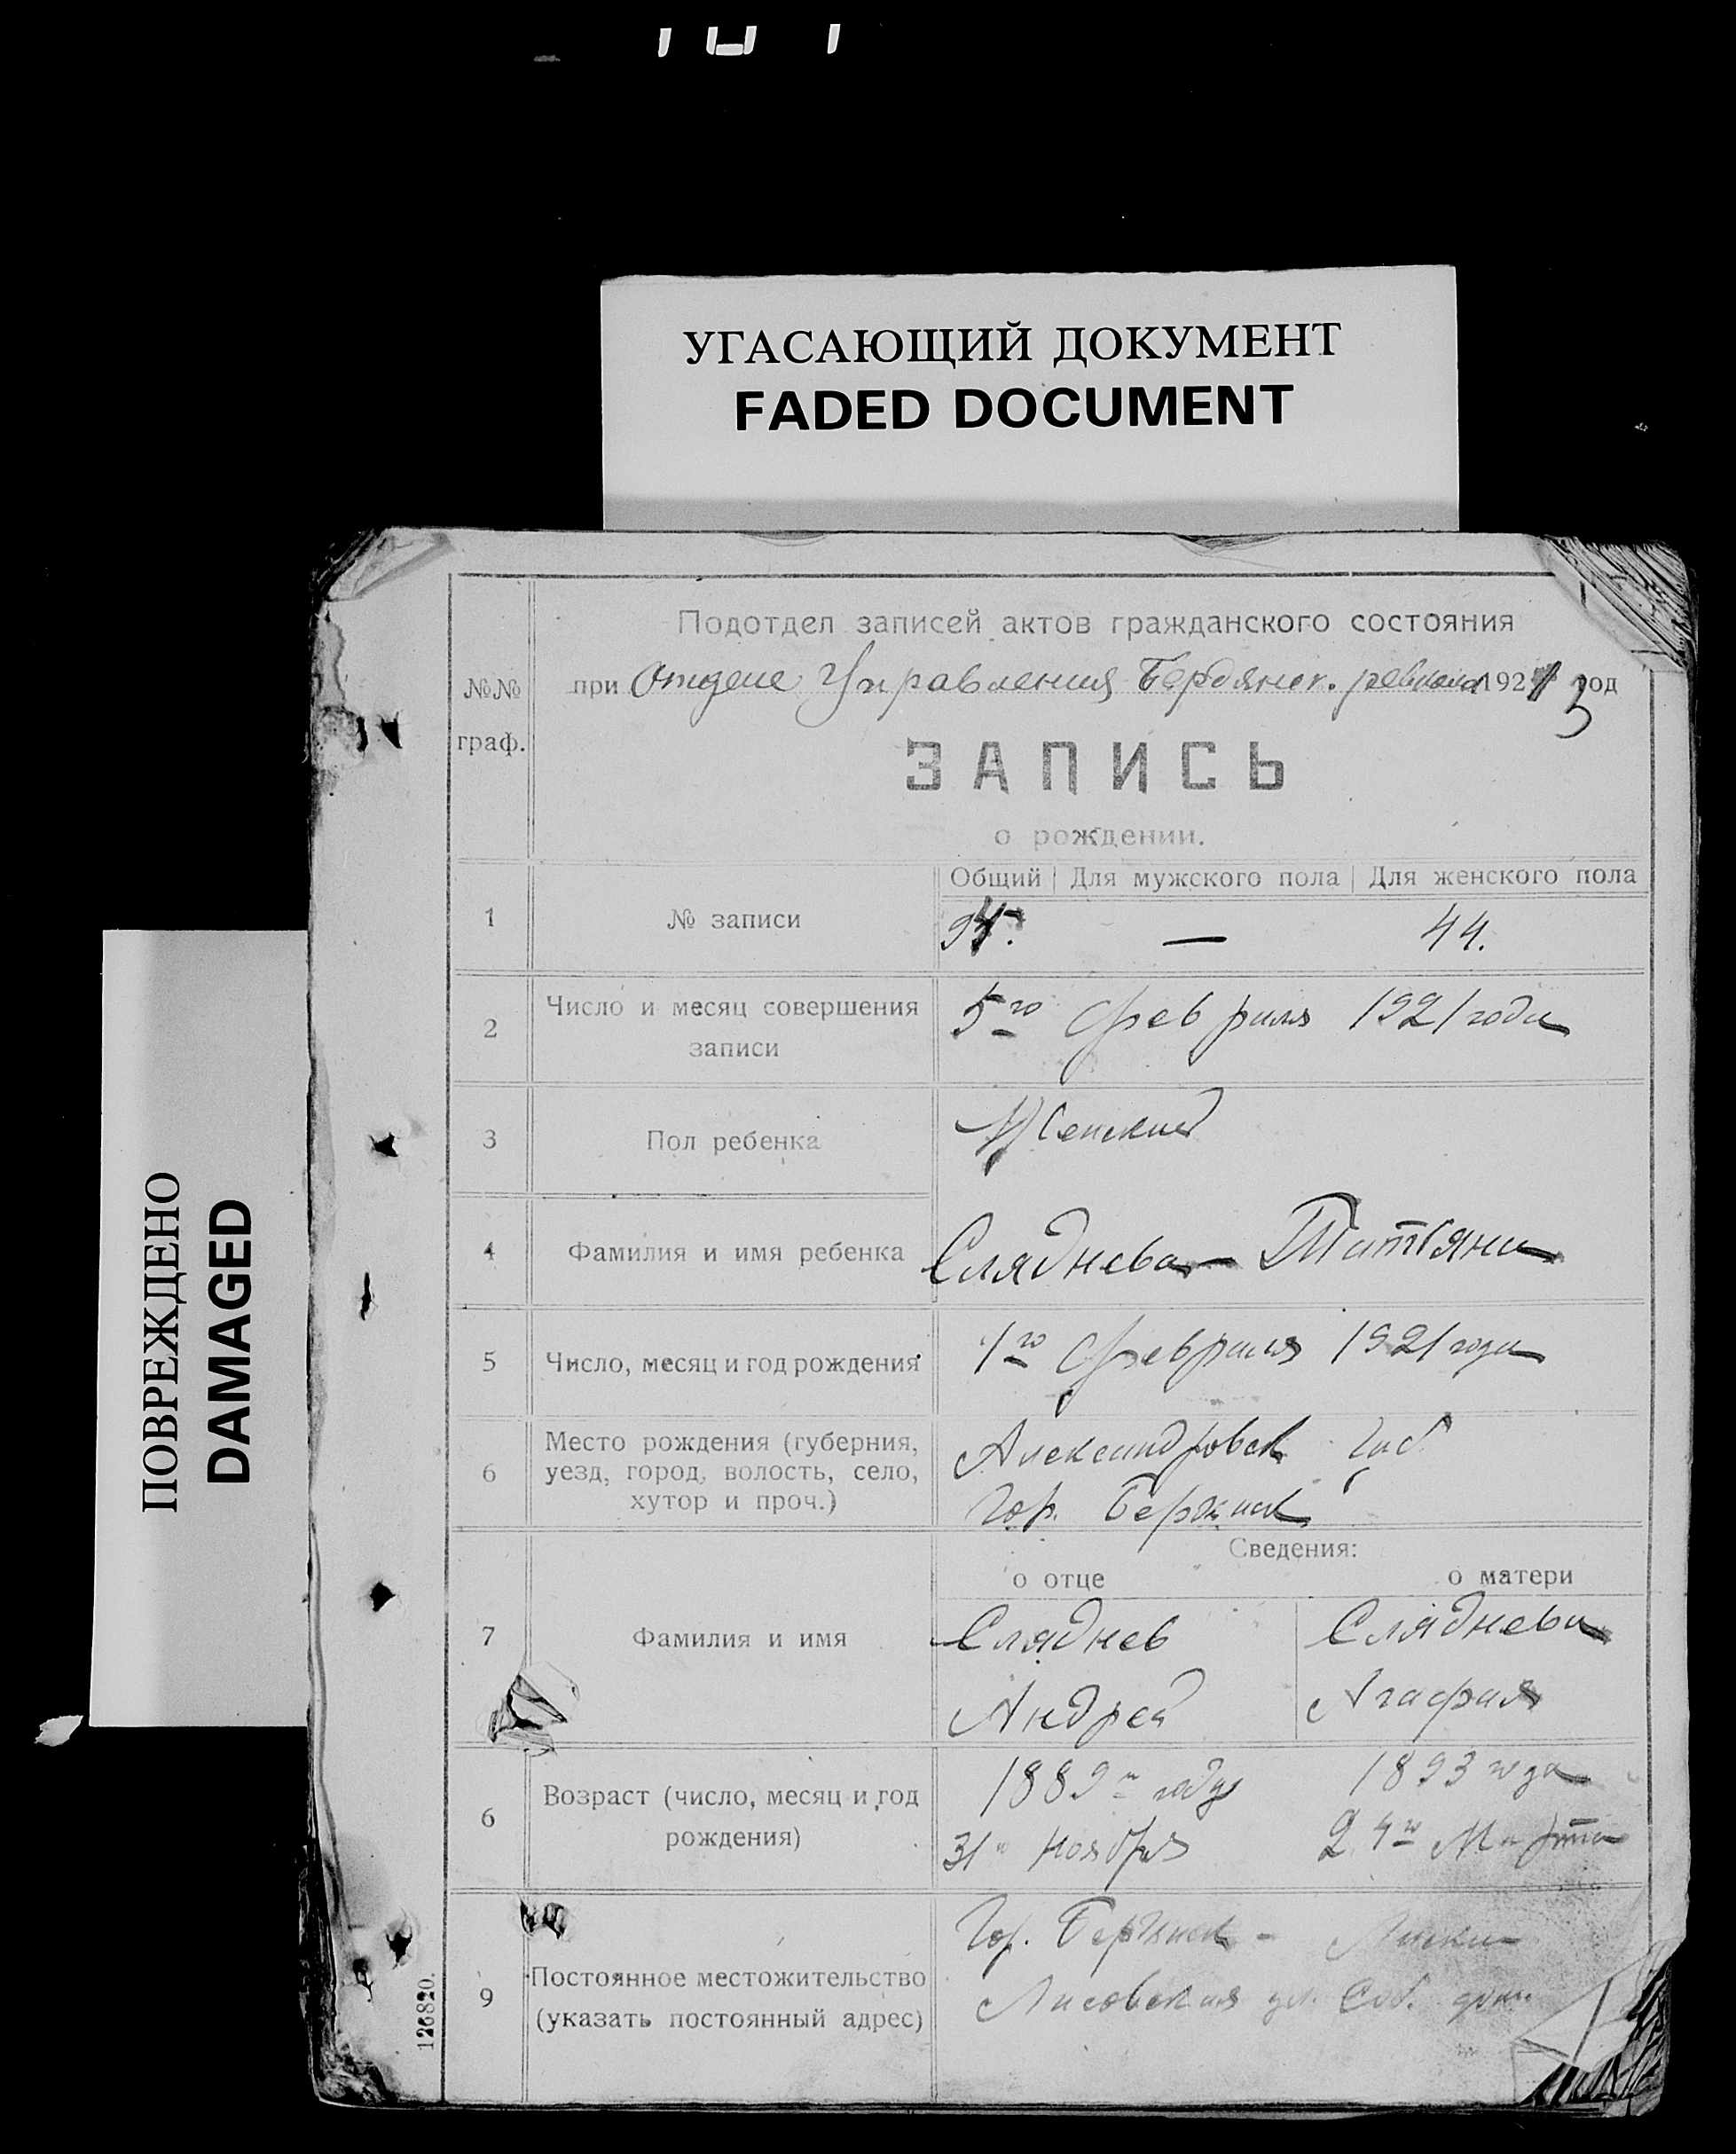 УГАСАЮЩИЙ ДОКУМЕНТ
FADED DOCUMENT
ПОВРЕЖДЕНО
DAMAGED
Подотдел записей актов гражданского состояния
№№ граф.
при Отделе Управления Бердянск. ревкома 1921 год
3
ЗАПИСЬ
о рождении.
Общий Для мужского пола Для женского пола
1 № записи — 44.
2 Число и месяц совершения записи 5го февраля 1921 года
3 Пол ребенка Женский
4 Фамилия и имя ребенка Сляднева Татьяна
5 Число, месяц и год рождения 1го февраля 1921 года
6 Место рождения (губерния, уезд, город, волость, село, хутор и проч.) Александровск Губ.
Гор. Бердянск
Сведения:
о отце о матери
7 Фамилия и имя Сляднев Сляднева
Андрей Агафия
6 Возраст (число, месяц и год рождения) 1889 году 1893 года
31 Ноября 24го Марта
9 Постоянное местожительство (указать постоянный адрес) Гор. Бердянск - Лиски
Лисовская ул. Соб. дом
126820.